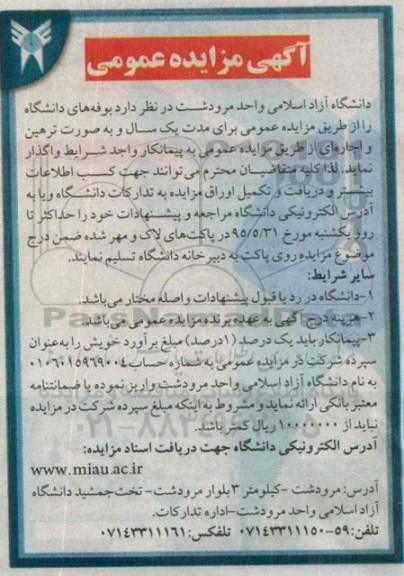 آگهی مزایده عمومی
دانشگاه آزاد اسلامی واحد مرودشت در نظر دارد بوفه‌های دانشگاه
را از طریق مزایده عمومی برای مدت یک سال و به صورت ترهین
و اجاره‌ای از طریق مزایده عمومی به پیمانکار واجد شرایط واگذار
نماید. لذا کلیه متقاضیان محترم می‌توانند جهت کسب اطلاعات
بیشتر و دریافت و تکمیل اوراق مزایده به تدارکات دانشگاه و یا به
آدرس الکترونیکی دانشگاه مراجعه و پیشنهادات خود را حداکثر تا
روز یکشنبه مورخ ۹۵/۵/۳۱ در پاکت‌های لاک و مهر شده ضمن درج
موضوع مزایده روی پاکت به دبیرخانه دانشگاه تسلیم نمایند.
سایر شرایط:
۱-دانشگاه در رد یا قبول پیشنهادات واصله مختار می‌باشد.
۲-هزینه درج آگهی به عهده برنده مزایده عمومی می‌باشد.
۳-پیمانکار باید یک درصد (۱درصد) مبلغ برآورد خویش را به‌عنوان
سپرده شرکت در مزایده عمومی به شماره حساب ۰۱۰۶۰۱۵۹۶۹۰۰۴
به نام دانشگاه آزاد اسلامی واحد مرودشت واریز نموده یا ضمانتنامه
معتبر بانکی ارائه نماید و مشروط به اینکه مبلغ سپرده شرکت در مزایده
نباید از ۱۰۰۰۰۰۰۰ ریال کمتر باشد.
آدرس الکترونیکی دانشگاه جهت دریافت اسناد مزایده:
www.miau.ac.ir
آدرس: مرودشت -کیلومتر ۳ بلوار مرودشت- تخت‌جمشید دانشگاه
آزاد اسلامی واحد مرودشت-اداره تدارکات.
تلفن: ۵۹-۰۷۱۴۳۳۱۱۱۵۰ تلفکس: ۰۷۱۴۳۳۱۱۱۶۱
ParsNamadData